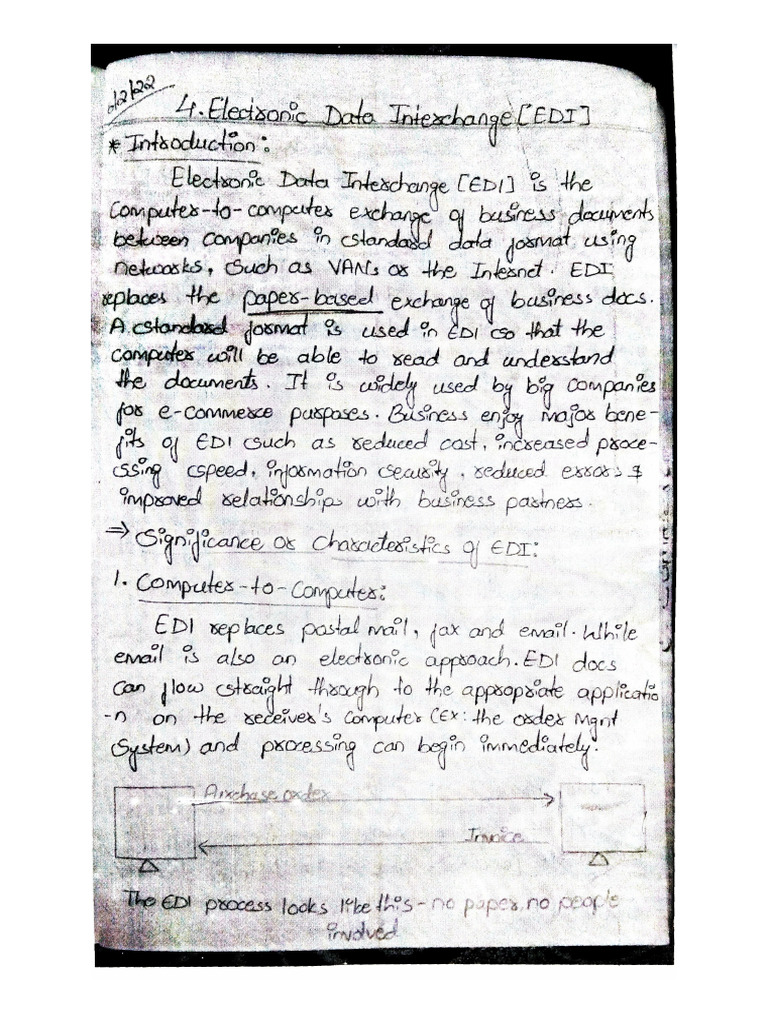 /2/22
4. Electronic Data Interchange [EDI]
* Introduction:
Electronic Data Interchange [EDI] is the
computer-to-computer exchange of business documents
between companies in standard data format, using
networks, such as VANs or the Internet. EDI
replaces the paper-based exchange of business docs.
A standard format is used in EDI so that the
computer will be able to read and understand
the documents. It is widely used by big companies
for e-commerce purposes. Business enjoy major bene-
fits of EDI such as reduced cost, increased proce-
ssing speed, information security, reduced errors &
improved relationships with business partners.
⇒ Significance or Characteristics of EDI:
1. Computer-to-Computer:
EDI replaces postal mail, fax and email. While
email is also an electronic approach. EDI docs
can flow straight through to the appropriate applicatio
-n on the receiver's computer (Ex: the order Mgnt
System) and processing can begin immediately.
Purchase order
Invoice
The EDI process looks like this - no paper, no people
involved